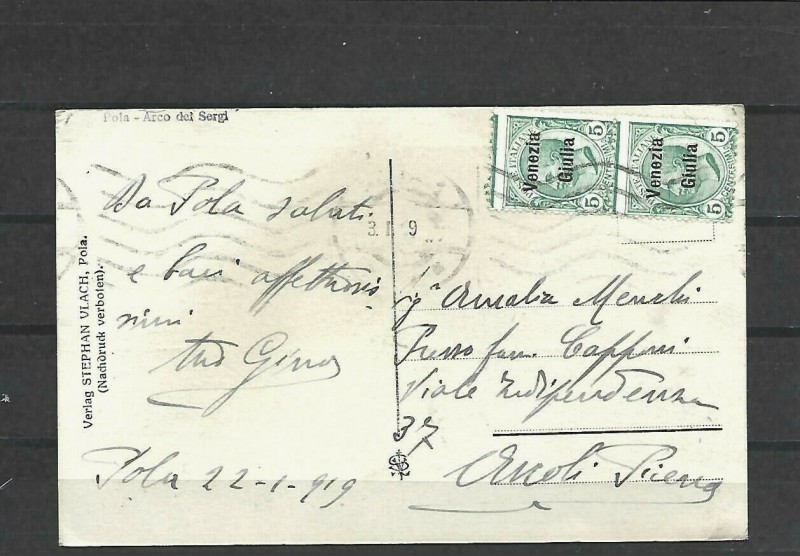 Pola - Arco dei Sergi
Venezia
Giulia
5
CENTESIMI
Venezia
Giulia
5
5
CENTESIMI
3. I. 9
Da Pola saluti
e baci affettuosis
simi
tuo Gino
Pola 22-1-919
Verlag STEPHAN VLACH, Pola.
(Nachdruck verboten).
Amalia Menchi
Presso fam. Capponi
Viale Indipendenza
37
Ascoli Piceno